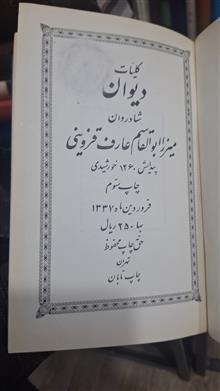 کلیات
دیوان
شادروان
میرزا ابوالقاسم عارف قزوینی
پیدایش ۱۲۶۰ خورشیدی
چاپ سوم
فروردین ماه ۱۳۳۷
بها ۲۵۰ ریال
حق چاپ محفوظ
تهران
چاپ تابان